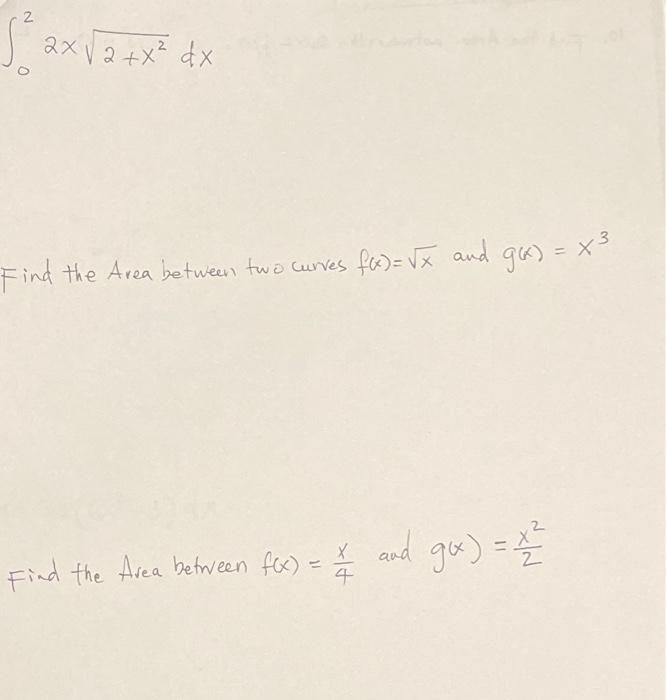 ∫₀² 2x√(2+x²) dx
Find the Area between two curves f(x)=√x and g(x) = x³
Find the Area between f(x) = x/4 and g(x) = x²/2